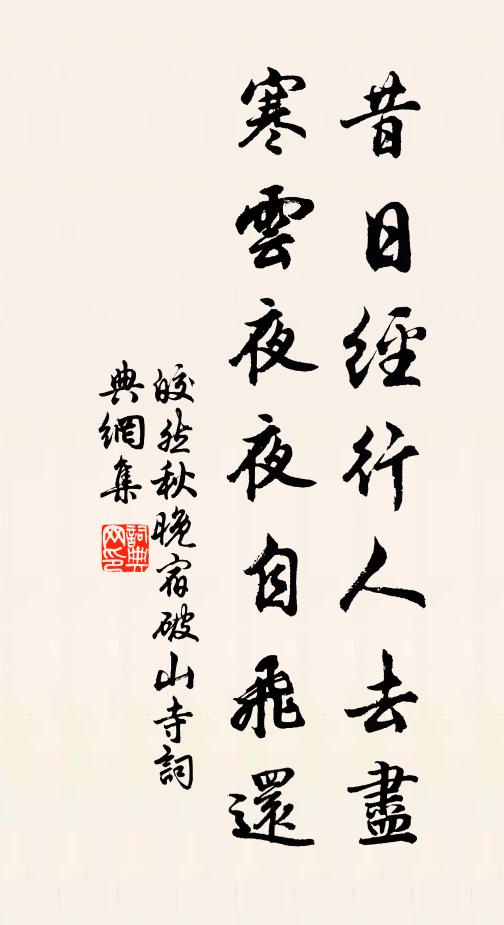 昔日經行人去盡
寒雲夜夜自飛還
皎然秋晚宿破山寺詞
典網集
詞典
网印